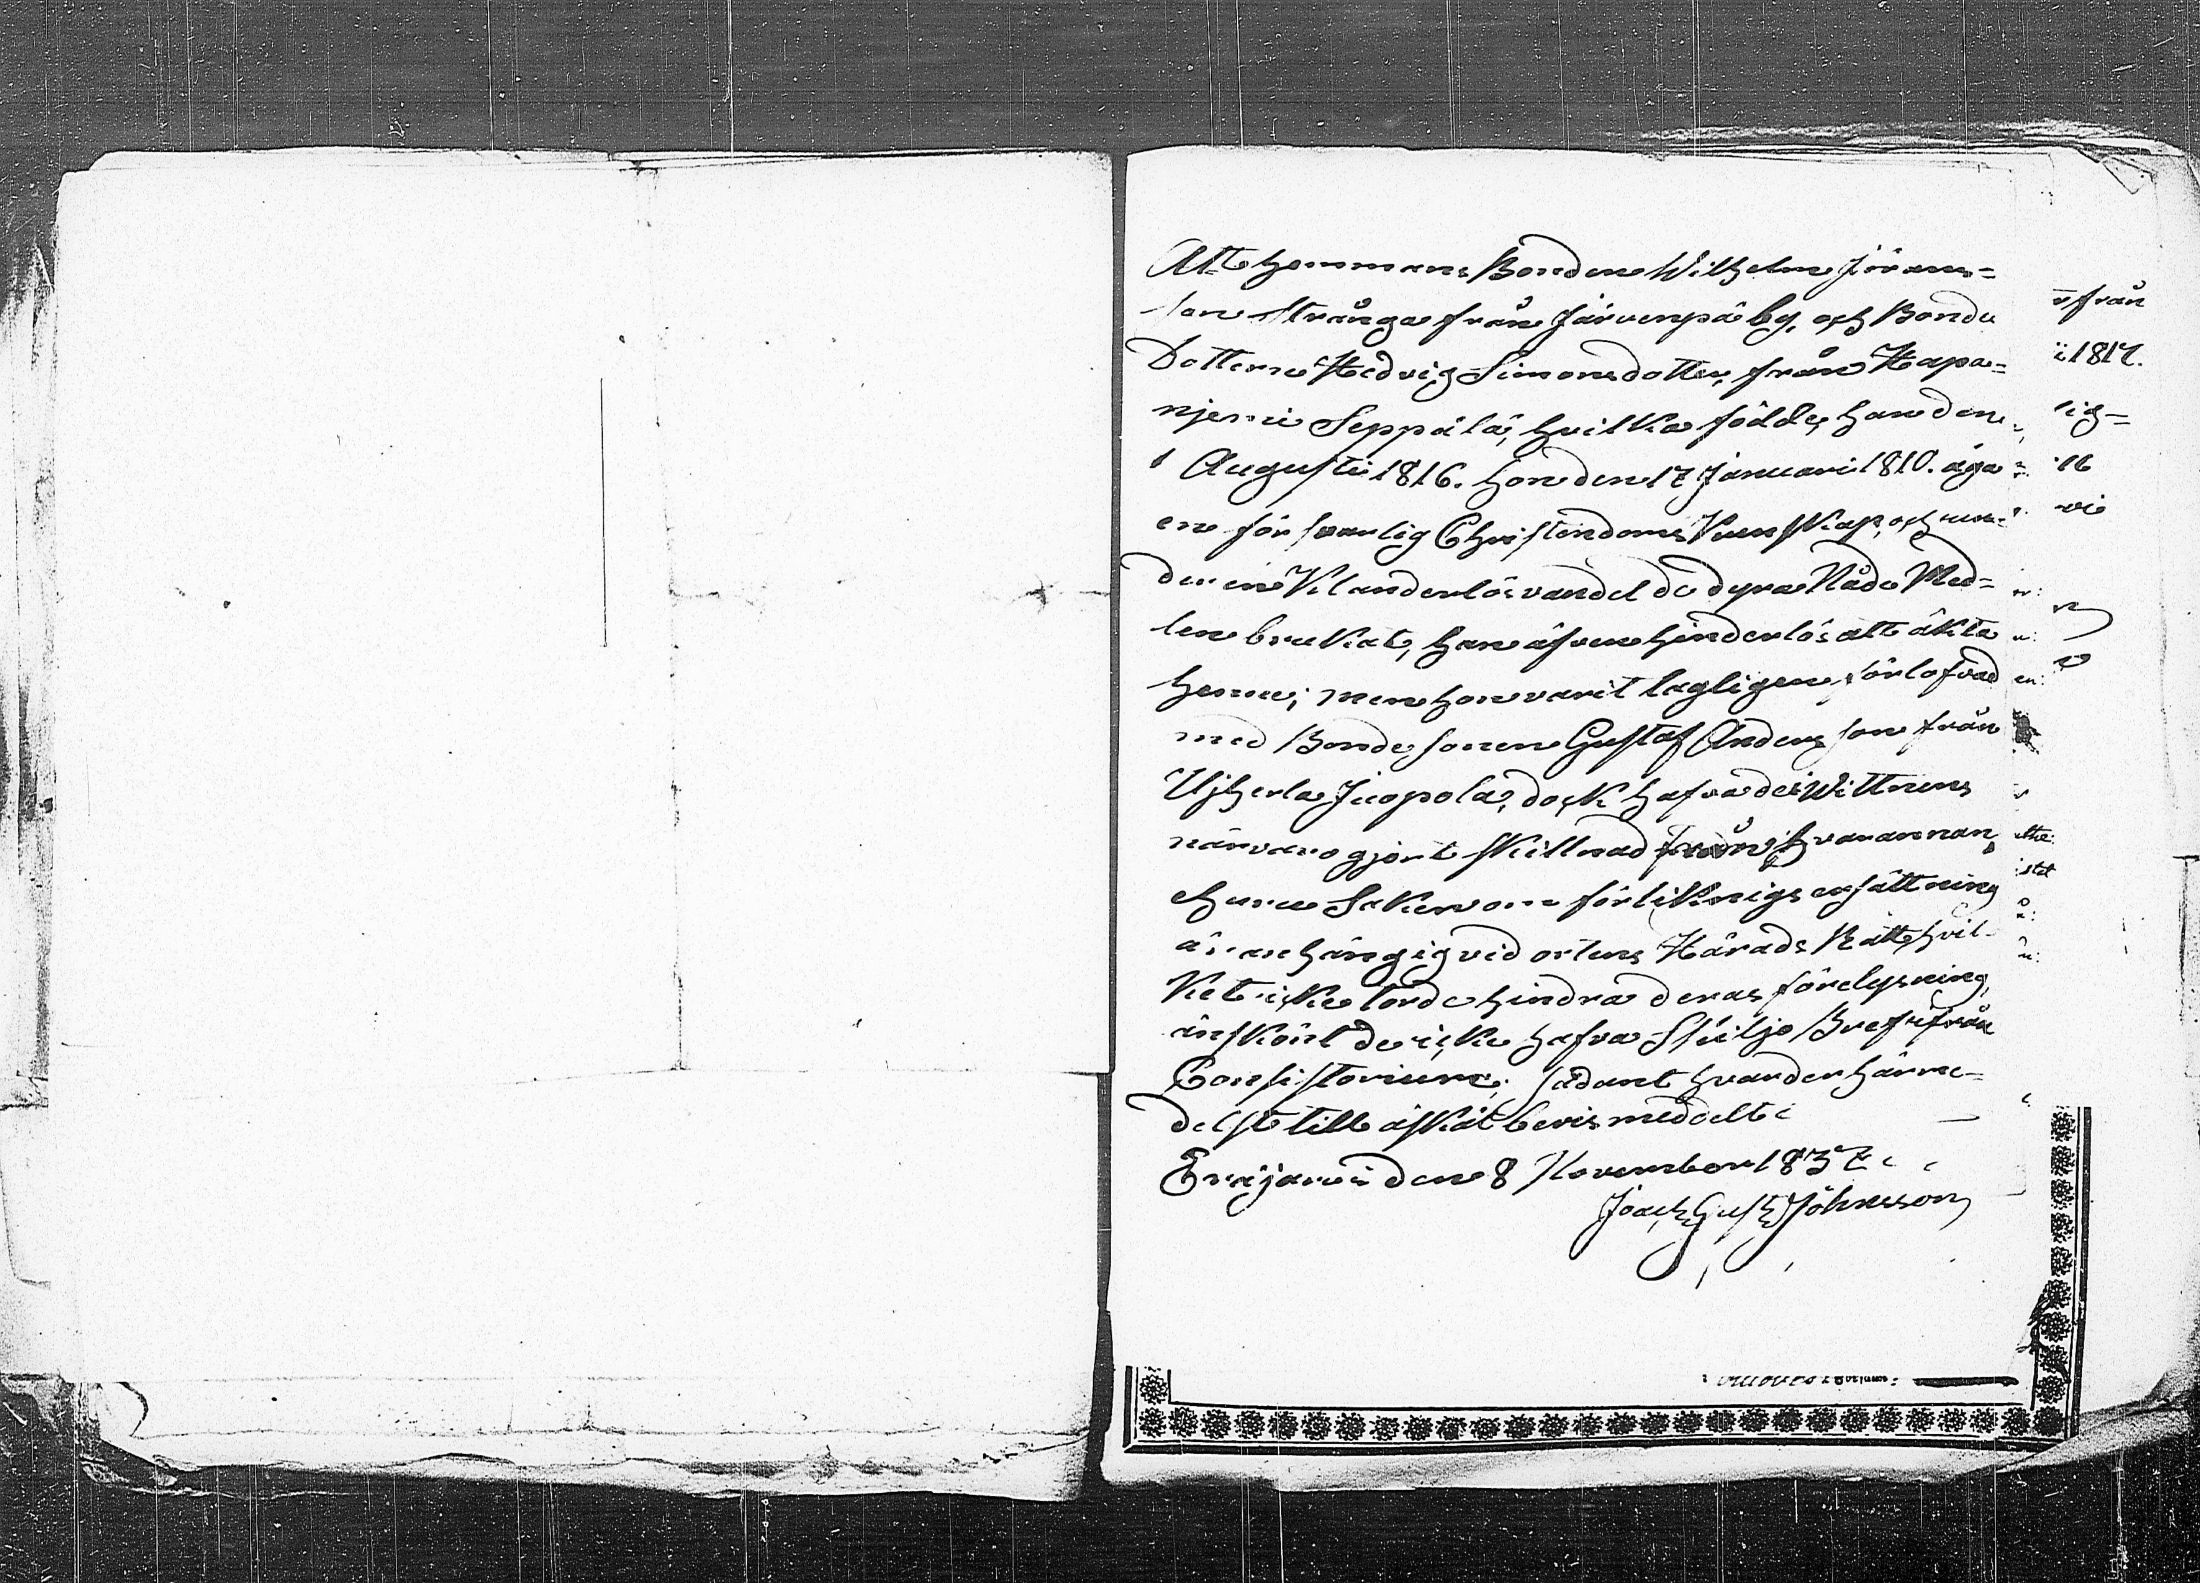 Att hemmans Bonden Wilhelm Jörans=
son Stränga från Järvenpä by, och Bonde
Dottern Hedvig Simonsdotter, från Hapa=
njemi Seppälä, hvilka födde, han den
1 Augusti 1816. hon den 17 Januari 1810. äga
en försvarlig Christendoms Kunskap, och un=
der en Klanderlös vandel de dyra Nåde Med=
len brukat, han äfven hinderlös att äkta
henne; men hon varit lagligen förlofvad
med Bondesonen Gustaf Andersson från
Uiherla Juopola, dock hafva de i Wittnens
närvaro gjort skillnad från hvarannan,
ehuru Saken om förliknings ersättning
är anhängig vid ortens Härads Rätt, hvil-
ket icke torde hindra deras förelysning,
änskönt de icke hafva Skiljo Bref ifrån
Consistorium; sådant hvarder härme=
delst till äskat bevis meddelt i
Eräjärvi den 8 November 1837.
Joach Gust Johnsson
från
i 1817.
lig=